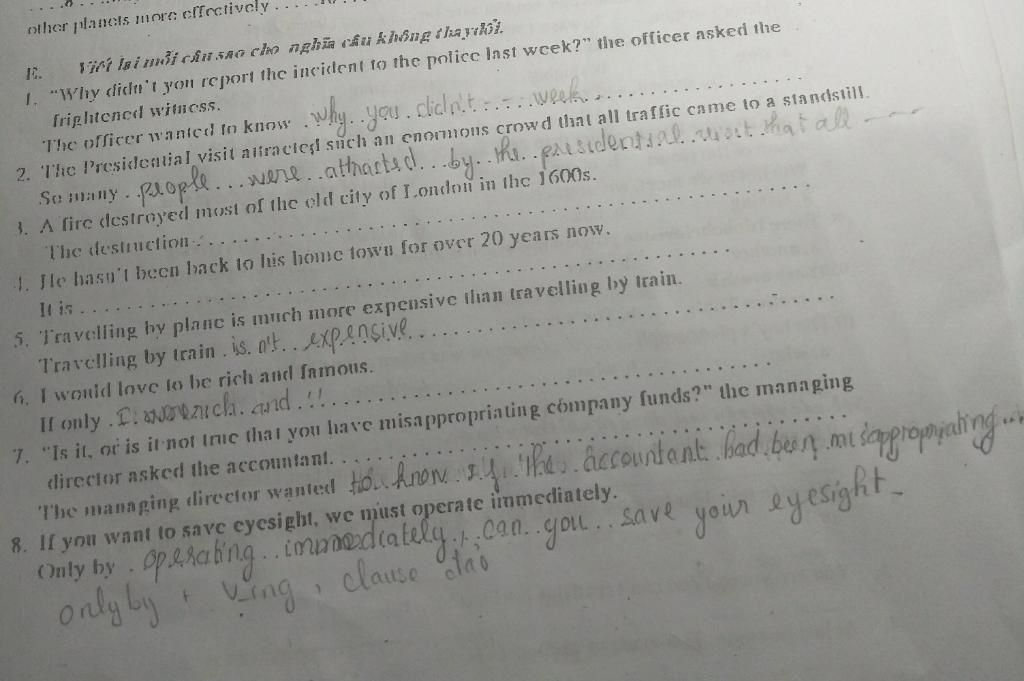 other planets more effectively . . . . .
E. Viết lại mỗi câu sao cho nghĩa câu không thay đổi.
1. "Why didn't you report the incident to the police last week?" the officer asked the
frightened witness.
The officer wanted to know why you didn't - - - week
2. The Presidential visit attracted such an enormous crowd that all traffic came to a standstill.
So many people were attracted by the presidential visit that all
3. A fire destroyed most of the old city of London in the 1600s.
The destruction
4. He hasn't been back to his home town for over 20 years now.
It is
5. Travelling by plane is much more expensive than travelling by train.
Travelling by train is n't expensive
6. I would love to be rich and famous.
If only I were rich and !!
7. "Is it, or is it not true that you have misappropriating company funds?" the managing
director asked the accountant.
The managing director wanted to know if the accountant had been misappropriating ...
8. If you want to save eyesight, we must operate immediately.
Only by operating immediately, can you save your eyesight
only by + V_ing, clause đảo